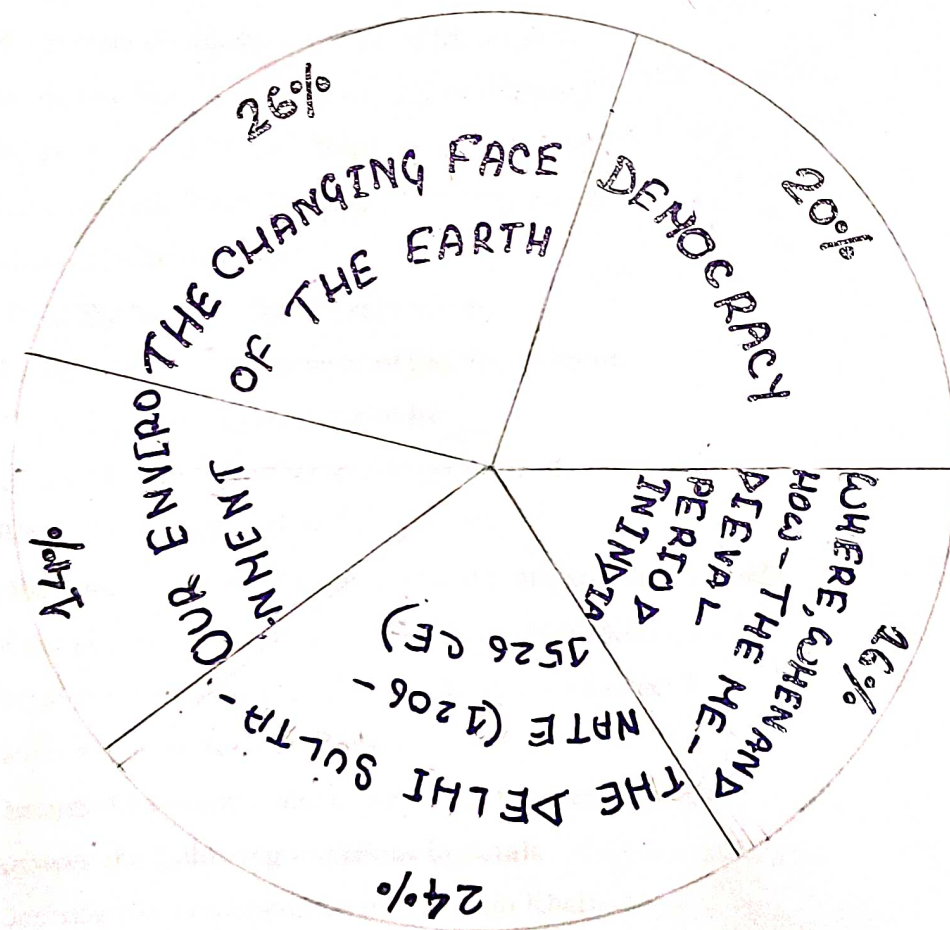 26%
THE CHANGING FACE
OF THE EARTH
20%
DEMOCRACY
16%
WHERE, WHEN AND
HOW - THE ME-
DIEVAL
PERIOD
IN INDIA
24%
THE DELHI SULTA-
NATE (1206 -
1526 CE)
14%
OUR ENVIRO
-NMENT